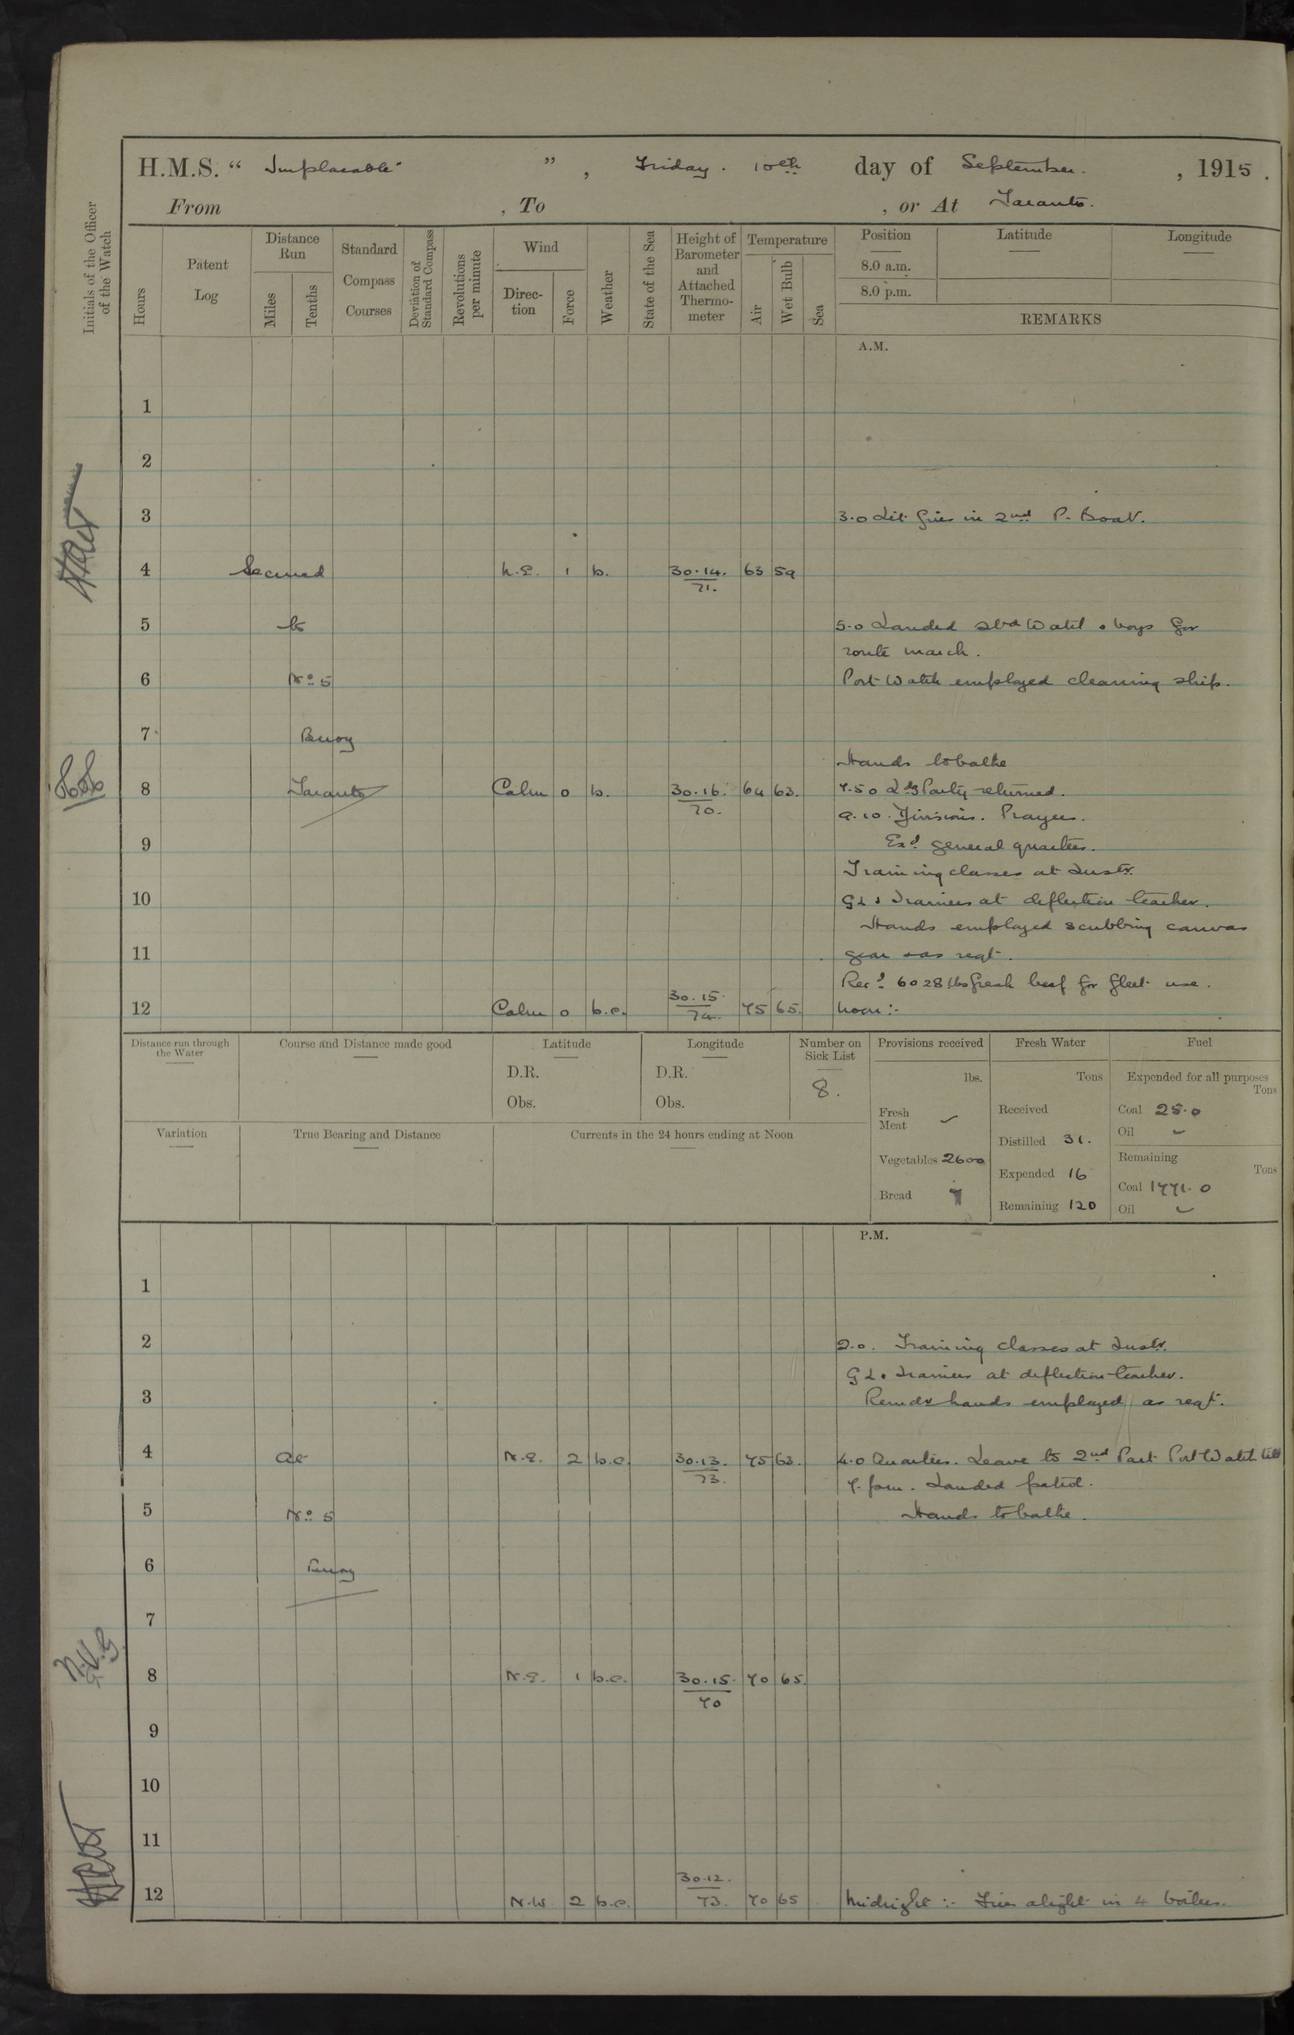 H.M.S. “ Implacable ” , Friday. 10th day of September. , 1915.
From , To , or At Taranto.
Initials of the Officer of the Watch
Hours
Patent Log
Distance Run
Miles
Tenths
Standard Compass Courses
Deviation of Standard Compass
Revolutions per minute
Wind
Direction
Force
Weather
State of the Sea
Height of Barometer and Attached Thermometer
Temperature
Air
Wet Bulb
Sea
Position
Latitude
Longitude
8.0 a.m.
8.0 p.m.
REMARKS
A.M.
1
2
3 3.0 Lit fires in 2nd P. Boat.
4 Secured N.E. 1 b. 30.14. 71. 63 59
5 to 5.0 Landed Stbd Watch & boys for
route march.
6 No 5 Port Watch employed cleaning ship.
7 Buoy
Hands to bathe
8 Taranto Calm 0 b. 30.16. 70. 64 63. 7.50 Ldg Party returned.
9.10. Divisions. Prayers.
9 Exd general quarters.
Training classes at Instr.
10 G.L. & Trainers at deflection teacher.
Hands employed scubbing canvas
11 gear & as reqt.
Recd 6028 lbs fresh beef for fleet use.
12 Calm 0 b.c. 30.15. 74. 75 65. Noon :-
Distance run through the Water
Course and Distance made good
Latitude
D.R.
Obs.
Longitude
D.R.
Obs.
Number on Sick List
8.
Provisions received
lbs.
Fresh Meat
Vegetables 2600
Bread
Fresh Water
Tons
Received
Distilled 31.
Expended 16
Remaining 120
Fuel
Expended for all purposes
Tons
Coal 25.0
Oil
Remaining
Tons
Coal 1771.0
Oil
Variation
True Bearing and Distance
Currents in the 24 hours ending at Noon
P.M.
1
2 2.0. Training classes at Instr.
G.L. & Trainers at deflection teacher.
3 Remdr hands employed as reqt.
4 At N.E. 2 b.c. 30.13. 73. 75 63. 4.0 Quarters. Leave to 2nd Part Port Watch till
7. pm. Landed patrol.
5 No 5 Hands to bathe.
6 Buoy
7
8 N.E. 1 b.c. 30.15. 70 70 65.
9
10
11
12 N.W. 2 b.c. 30.12. 73. 70 65 Midnight :- Fires alight in 4 boilers.